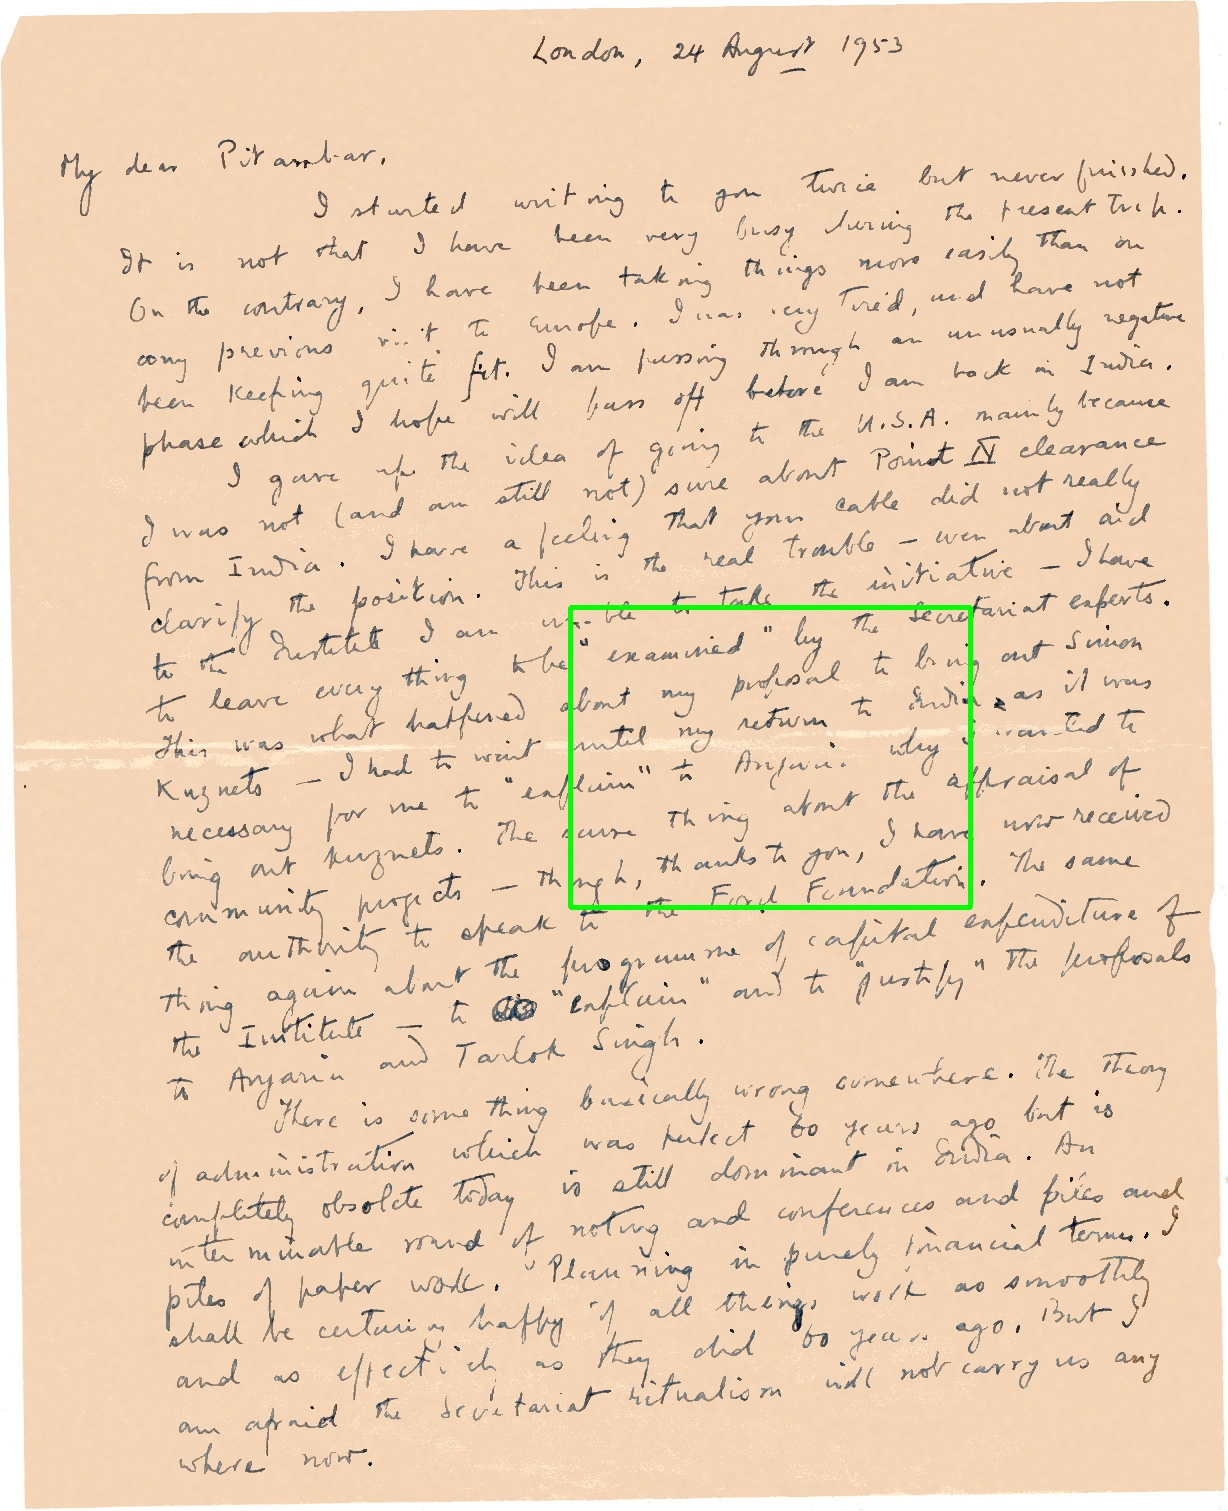 London, 24 August 1953
My dear Pitambar,
I started writing to you twice but never finished.
It is not that I have been very busy during the present trip.
On the contrary, I have been taking things more easily than on
any previous visit to Europe. I was very tired, and have not
been keeping quite fit. I am passing through an unusually negative
phase which I hope will pass off before I am back in India.
I gave up the idea of going to the U.S.A. mainly because
I was not (and am still not) sure about Point IV clearance
from India. I have a feeling that your cable did not really
clarify the position. This is the real trouble - even about aid
to the Institute I am unable to take the initiative - I have
to leave every thing to be "examined" by the Secretariat experts.
This was what happened about my proposal to bring out Simon
Kuznets - I had to wait until my return to India, as it was
necessary for me to "explain" to Anjaria why I wanted to
bring out Kuznets. The same thing about the appraisal of
community projects - though, thanks to you, I have now received
the authority to speak to the Ford Foundation. The same
thing again about the programme of capital expenditure of
the Institute - to "explain" and to "justify" the proposals
to Anjaria and Tarlok Singh.
There is some thing basically wrong somewhere. The theory
of administration which was perfect 60 years ago but is
completely obsolete today is still dominant in India. An
interminable round of noting and conferences and files and
piles of paper work. Planning in purely financial terms. I
shall be certainly happy if all things work as smoothly
and as effectively as they did 60 years ago. But I
am afraid the Secretariat ritualism will not carry us any
where now.